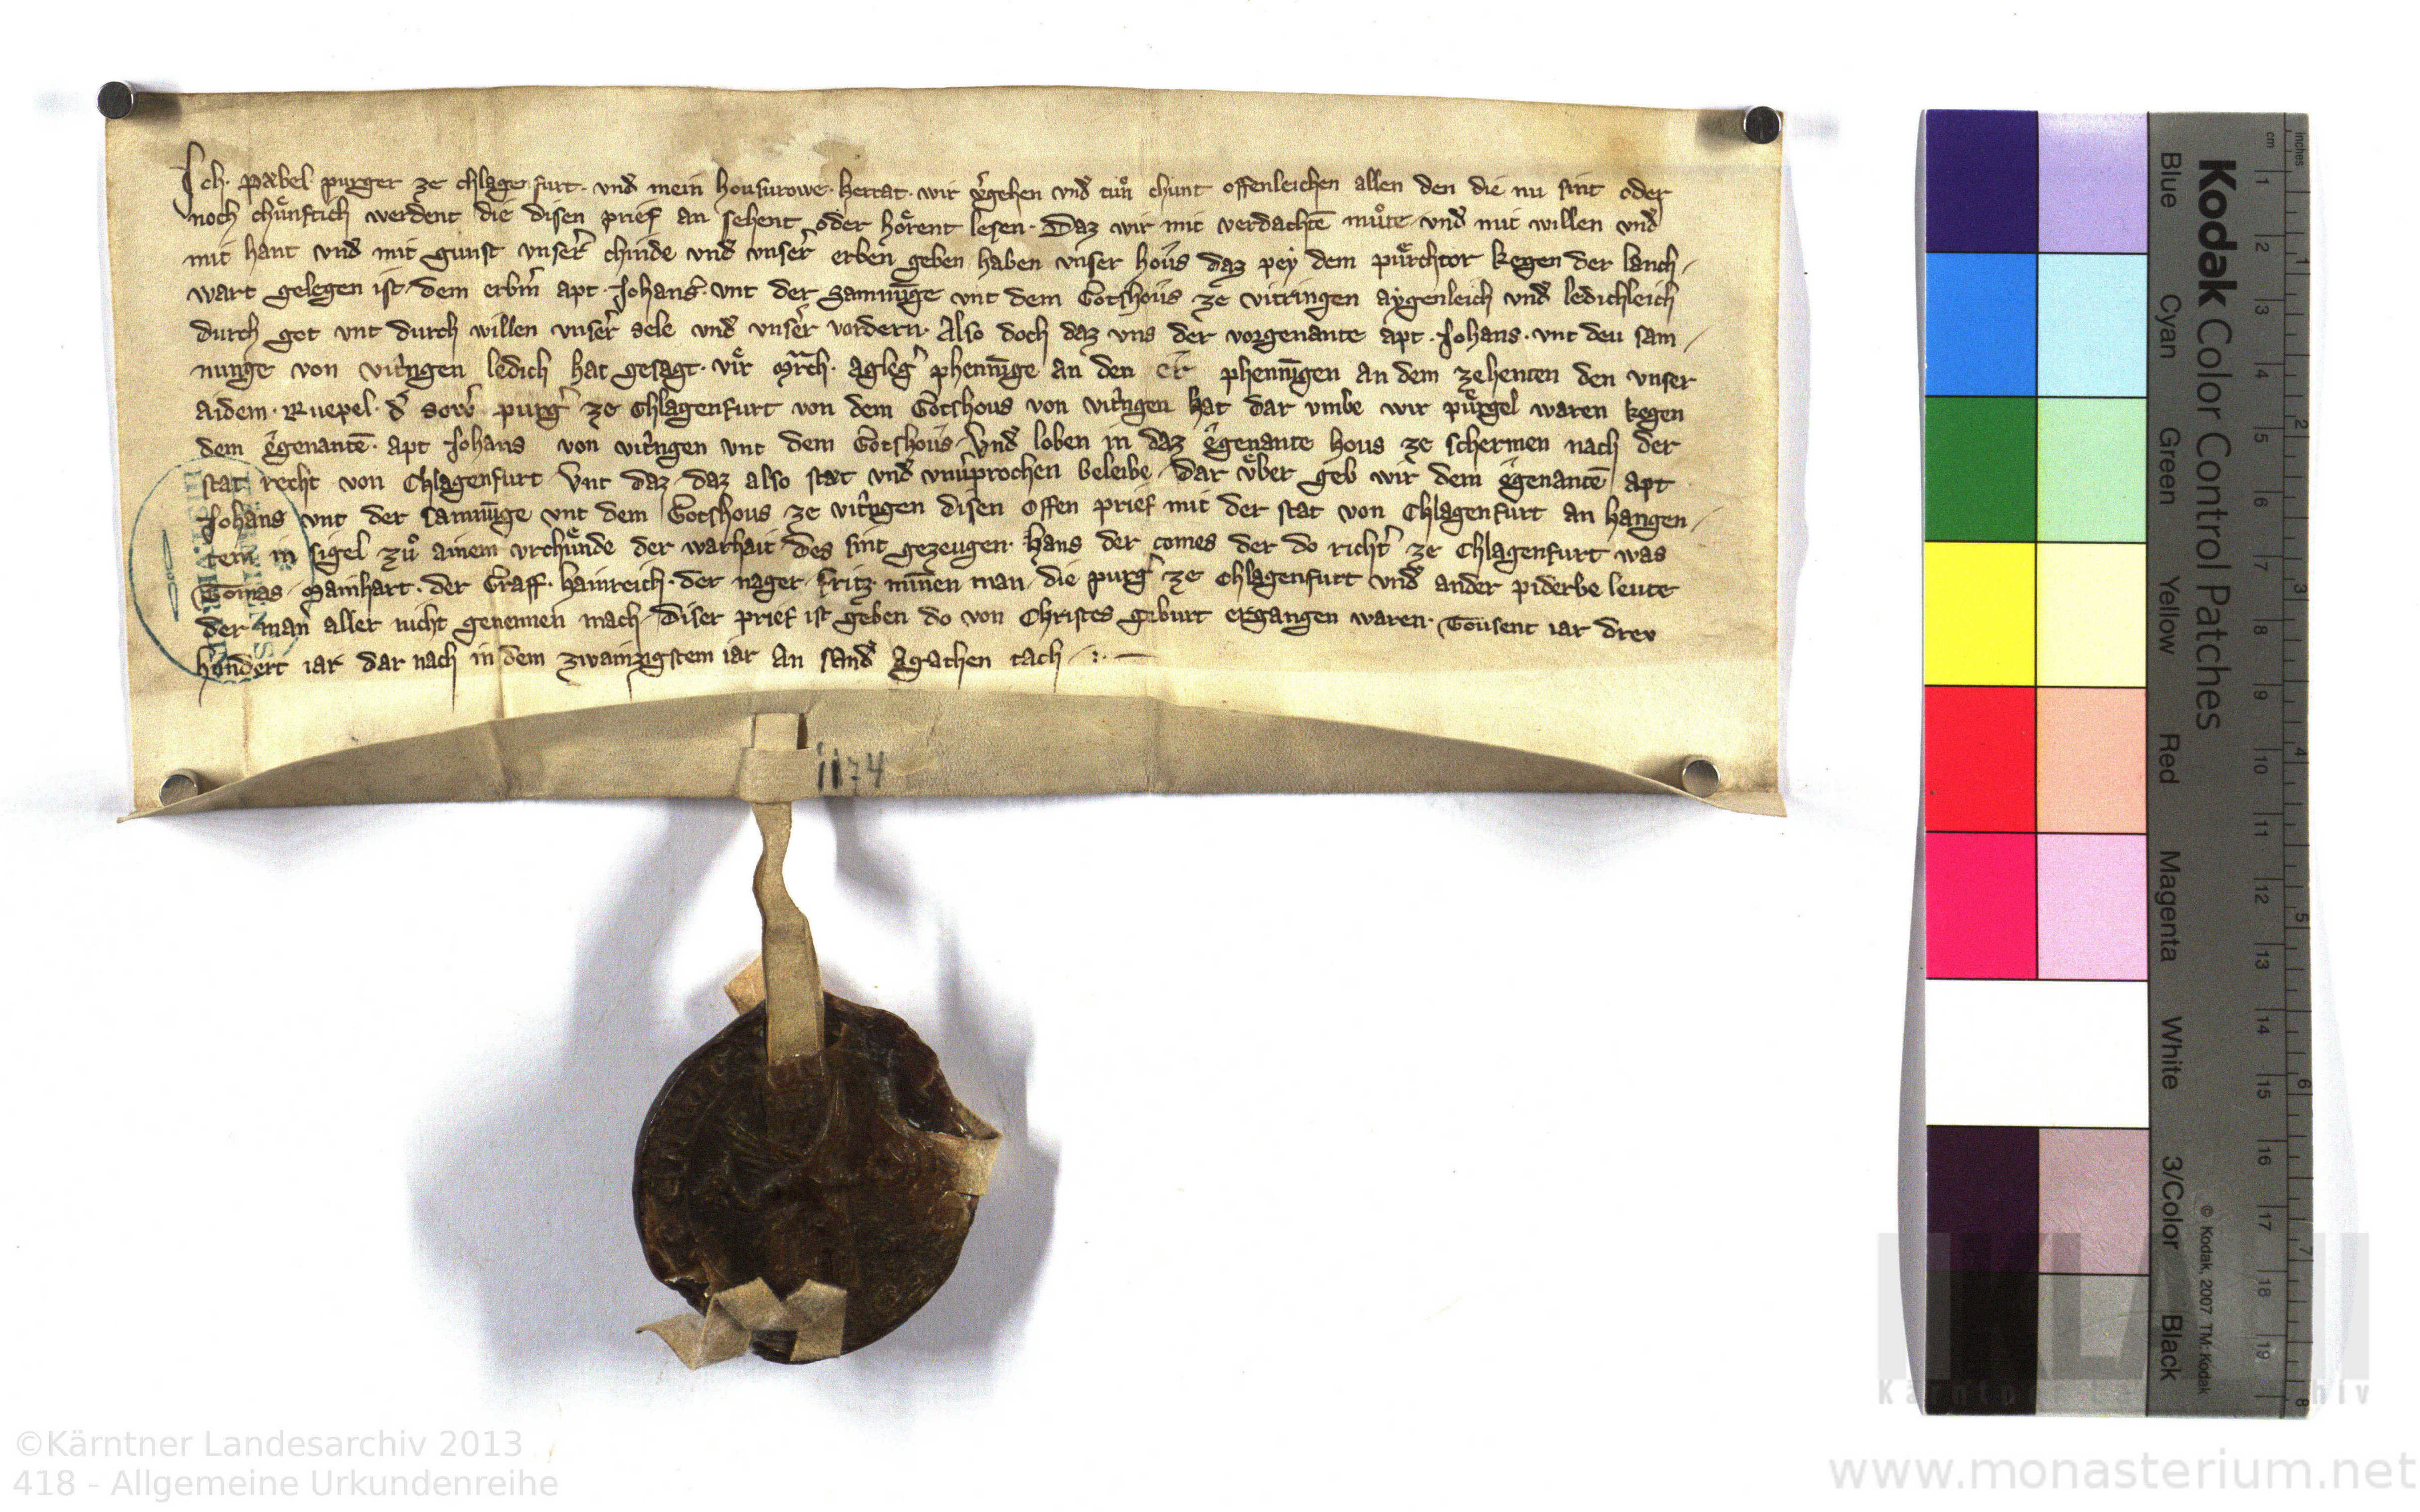 Ich · Pæbel · purger ze chlagenfurt · vnd mein housurowe · hertat · wir v̾gehen vnd̾ tuͦn chunt offenleichen allen den die nu sint oder
noch chuͤnftich werdent die disen prief an sehent oder hoͤrent lesen · Daz wir mit verdachtē muͦte vnd̾ mit willen vnd̾
mit hant vnd̾ mit gunst vnser̾ chinde vnd̾ vnser̾ erben geben haben vnser hoűs daz pey dem puͤrchtor kegen der lanch /
wart gelegen ist · dem erbm̾ apt · Johans · vnt der samnūge vnt dem Gotshoűs ze vitringen aygenleich vnd̾ ledichleich
durch got vnt durch willen vnser̾ sele vnd̾ vnser̾ vordern · Also doch daz vns der vorgenante apt · Johans · vnt deu sam /
nunge von vitˢngen ledich hat gesagt · vīr march · agleg̾ phennīge an den er phennīgen an dem zehenten den vnser
aidem · Ruepel · d̾ sow̾ purg̾ ze Chlagenfurt von dem Gotshous von vitˢngen hat dar vmbe wir puͤrgel waren kegen
dem êgenantē · apt Johans von vitˢngen vnt dem Gotshoűs · Vnd̾ loben in daz êgenante hous ze schermen nach der
stat recht von Chlagenfurt Vnt daz daz also stæt vnd̾ vnv̾prochen beleibe · dar vͤber geb wir dem êgenantē apt
Johans vnt der samnūge vnt dem Gotshous ze vitˢngen disen offen prief mit der stat von Chlagenfurt an hangen /
tem in sigel zuͦ ainem vrchuͤnde der warhait · des sint gezeugen · hans der comes der do richt̾ ze Chlagenfurt was
Tomas · Mainhart · der Graff · hainreich · der nager · fritz · minnen man · die purg̾ ze chlagenfurt vnd̾ ander piderbe leute
der man̾ aller nicht genennen mach · Diser prief ist geben do von Christes geburt ergangen waren · Tousent iar drev
hundert iar dar nach in dem zwainzigstem iar an sand̾ Agathen tach · : · —
1174
Kodak Color Control Patches
Blue Cyan Green Yellow Red Magenta White 3/Color Black
© Kodak, 2007 TM: Kodak
cm 1 2 3 4 5 6 7 8 9 10 11 12 13 14 15 16 17 18 19
inches 1 2 3 4 5 6 7 8
KLA
Kärntner Landesarchiv
©Kärntner Landesarchiv 2013
418 - Allgemeine Urkundenreihe
www.monasterium.net